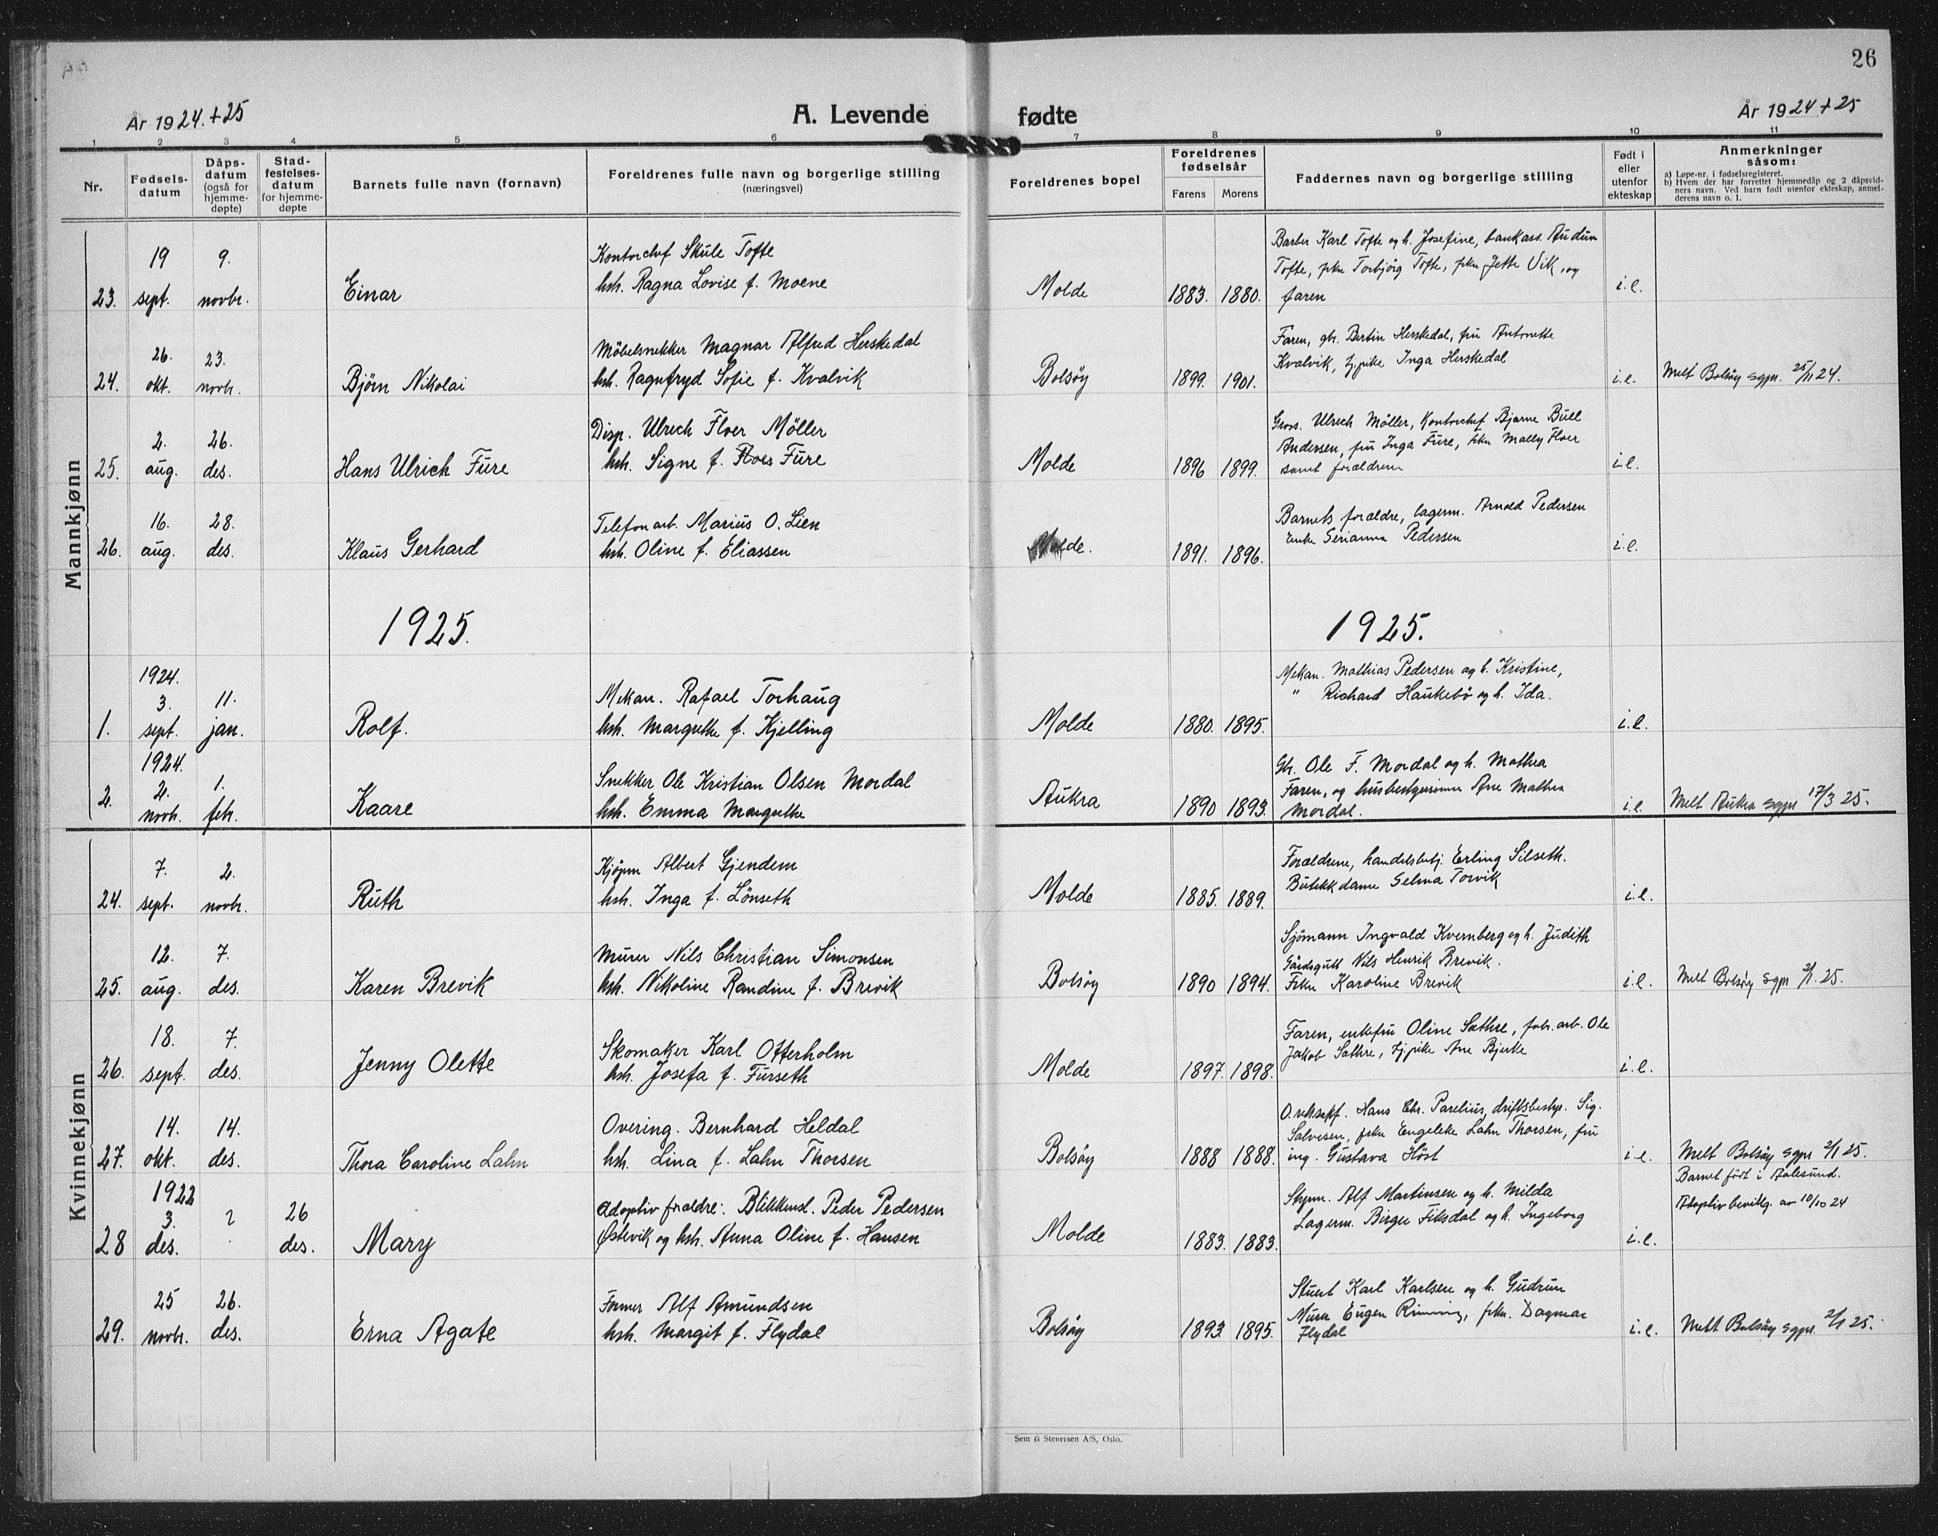 26
År 1924+25
A. Levende fødte
År 1924+25
1 2 3 4 5 6 7 8 9 10 11
Nr.
Fødsels-
datum
Dåps-
datum
(også for
hjemme-
døpte)
Stad-
festelses-
datum
for hjemme-
døpte
Barnets fulle navn (fornavn)
Foreldrenes fulle navn og borgerlige stilling
(næringsvei)
Foreldrenes bopel
Foreldrenes
fødselsår
Farens Morens
Faddernes navn og borgerlige stilling
Født i
eller
utenfor
ekteskap
Anmerkninger
såsom:
a) Løpe-nr. i fødselsregisteret.
b) Hvem der har forrettet hjemmedåp og 2 dåpsvid-
ners navn. Ved barn født utenfor ekteskap, anmel-
derens navn o. l.
Mannkjønn
23. 19 sept. 9. novbr. Einar
Kontorchef Skule Tofte
hsh. Ragna Lovise f. Moene
Molde 1883. 1880.
Barber Karl Tofte og h. Josefine, bankass. Audun
Tofte, frkn Torbjörg Tofte, frkn Jette Vik, og
faren
i.e.
24. 26. okt. 23. novbr. Bjørn Nikolai
Möbelsnekker Magnar Alfred Herskedal
hsh. Ragnfryd Sofie f. Kvalvik
Bolsöy 1899. 1901.
Faren, gbr. Bertin Herskedal, fru Antonette
Kvalvik, tj.pike Inga Herskedal
i.e.
Melt Bolsöy sgpr. 25/11 24.
25. 2. aug. 26. des. Hans Ulrich Fure
Disp. Ulrech Floer Möller
hsh. Signe f. Floer Fure
Molde 1896 1899.
Gros. Ulrech Möller, Kontorchef Bjarne Bull
Andersen, fru Inga Fure, frkn Mally Floer
samt forældrene
i.e.
26. 16. aug. 28. des. Klaus Gerhard
Telefonarb. Marius O. Lien
hsh. Oline f. Eliassen
Molde. 1891. 1896.
Barnets forældre, lagerm. Arnold Pedersen
Enke Serianna Pedersen
i.e.
1925. 1925.
1. 1924. 3. sept. 11. jan. Rolf.
Mekan. Rafael Torhaug
hsh. Margrethe f. Kjelling
Molde 1880. 1895.
Mekan. Mathias Pedersen og h. Kristine,
" Richard Haukebö og h. Ida.
i.e.
2. 1924. 2. novbr. 1. febr. Kaare
Snekker Ole Kristian Olsen Mordal
hsh. Emma Margrethe
Aukra 1890 1893.
Gbr. Ole F. Mordal og h. Mathea
Faren, og husbestyrerinne Ane Mathea
Mordal.
i.e.
Melt Aukra sgpr 17/3 25.
Kvinnekjønn
24. 7. sept. 2. novbr. Ruth
Kjöpm Albert Gjendem
hsh. Inga f. Lönseth
Molde 1885. 1889.
Forældrene, handelsbetj. Erling Silseth.
Butikkdame Selma Torvik
i.e.
25. 12. aug. 7. des. Karen Brevik
Murer Nils Christian Simonsen
hsh. Nikoline Randine f. Brevik
Bolsöy 1890 1894.
Sjömann Ingvald Kvernberg og h. Judith
Gårdsgutt Nils Henrik Brevik.
Frkn Karoline Brevik
i.e.
Melt Bolsöy sgpr 2/1. 25.
26. 18. sept. 7. des. Jenny Olette
Skomaker Karl Otterholm
hsh. Josefa f. Furseth
Molde 1897. 1898.
Faren, enkefru Oline Sæthre, fabr. arb. Ole
Jakob Sæthre, tj.pike Ane Bjerke
i.e.
27. 14. okt. 14. des. Thora Caroline Lahn
Overing. Bernhard Heldal
hsh. Lina f. Lahn Thorsen
Bolsöy 1888 1888.
O.rettssakf. Hans Chr. Parelius, driftsbestyr. Sig.
Salvesen, frkn Engeleke Lahn Thorsen, fru
ing. Gustava Höst
i.e.
Melt Bolsöy sgpr 2/1 25.
28 1922 3. des. ? 26 des. Mary
Adoptivforældre: Blikkensl. Peder Pedersen
Østevik og hsh. Anna Oline f. Hansen
Molde 1883. 1883.
Styrm. Alf Martinsen og h. Milda
Lagerm. Birger Fiksdal og h. Ingeborg
i.e.
Barnet født i Aalesund.
Adoptivbevilg. av 10/10 24
29. 25 novbr. 26. des. Erna Agate
Former Alf Amundsen
hsh. Margit f. Flydal
Bolsöy 1893. 1895.
Stuert Karl Karlsen og h. Gudrun
Murer Eugen Rinning, frkn. Dagmar
Flydal
i.e.
Melt Bolsöy sgpr 2/1 25.
Sem & Stenersen A/S, Oslo.